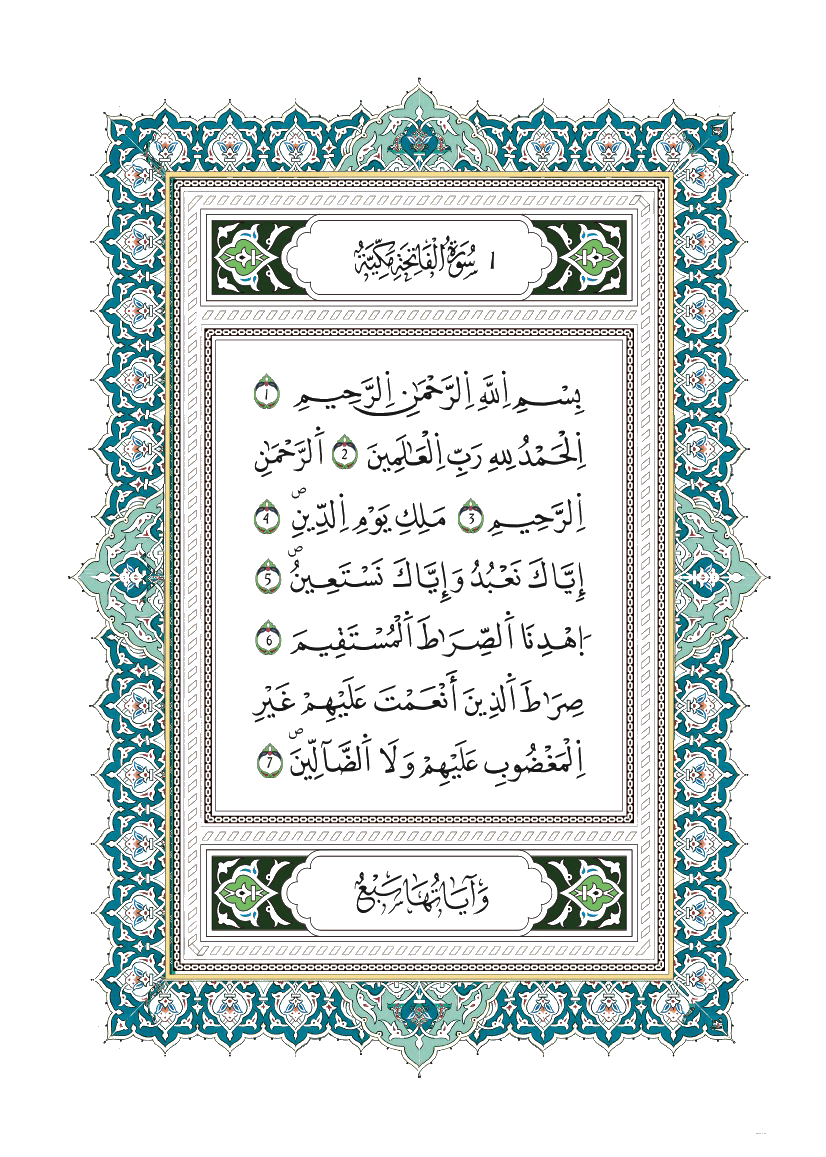 1 سُورَةُ الْفَاتِحَةِ مَكِّيَّةٌ
بِسْمِ اِ۬للَّهِ اِ۬لرَّحْمَٰنِ اِ۬لرَّحِيمِ 1
اِ۬لْحَمْدُ لِلهِ رَبِّ اِ۬لْعَٰلَمِينَ 2 اَ۬لرَّحْمَٰنِ
اِ۬لرَّحِيمِ 3 مَلِكِ يَوْمِ اِ۬لدِّينِۖ 4
إِيَّاكَ نَعْبُدُ وَإِيَّاكَ نَسْتَعِينُۖ 5
اَ۪هْدِنَا اَ۬لصِّرَٰطَ اَ۬لْمُسْتَقِيمَ 6
صِرَٰطَ اَ۬لذِينَ أَنْعَمْتَ عَلَيْهِمْ غَيْرِ
اِ۬لْمَغْضُوبِ عَلَيْهِمْ وَلَا اَ۬لضَّآلِّينَۖ 7
وَآيَاتُهَا سَبْعٌ